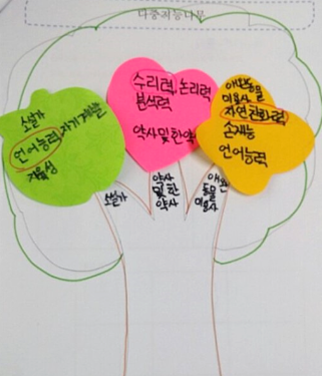 다중지능나무
소설가
언어능력, 자기계발
자율성
수리력, 논리력
분석력
약사 및 한약
애완동물
미용사
자연친화력
손재능
언어능력
소설가
약사
및 한
약사
애완
동물
미용사